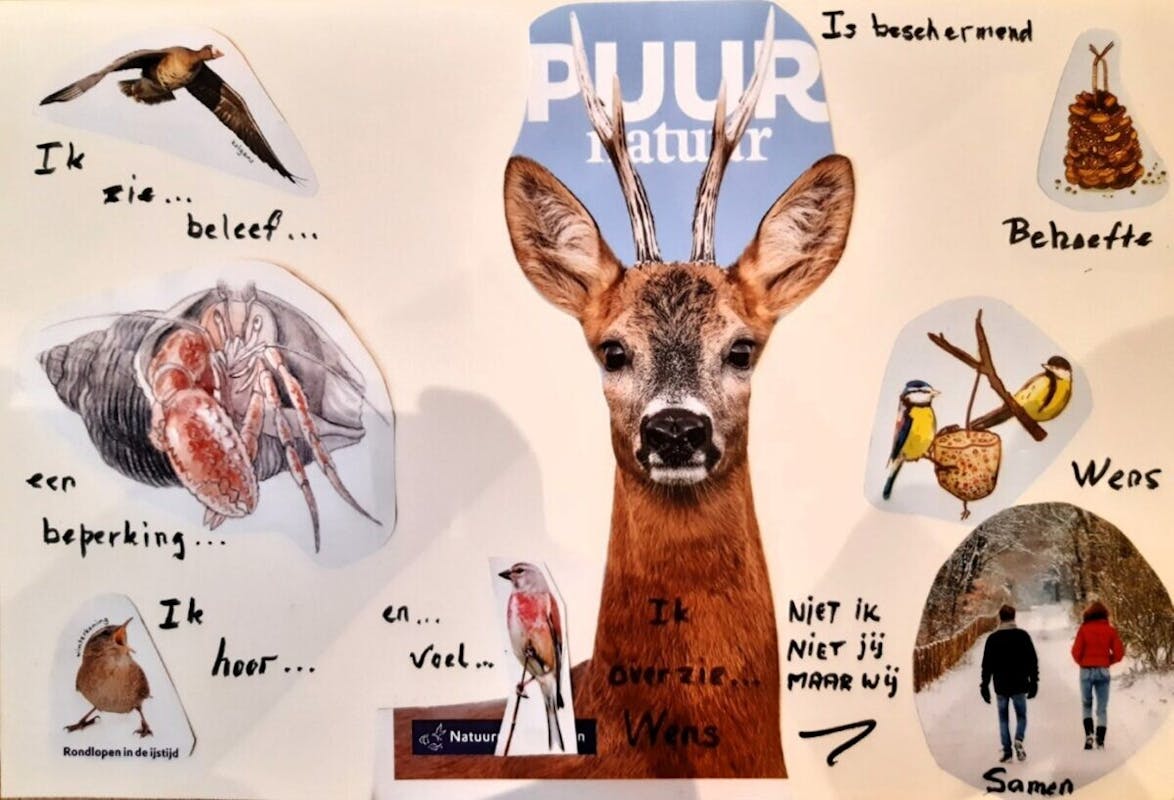 PUUR
natuur
Is beschermend
kolgans
Ik
zie...
beleef...
Behoefte
een
beperking...
Wens
winterkoning
Ik
hoor...
Rondlopen in de ijstijd
en...
voel...
Natuur
en
Ik
overzie...
Wens
NIET IK
NIET JIJ
MAAR WIJ
Samen